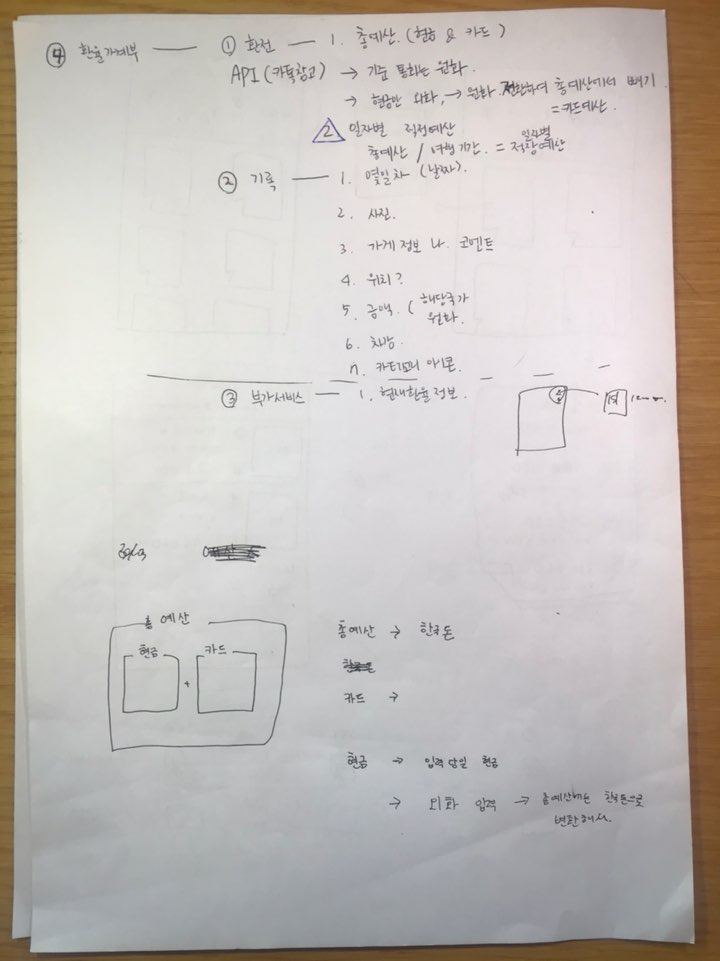 ④ 환율가계부 — ① 환전 — 1. 총예산. (현금 & 카드)
API (카톡참고) → 기준 통화는 원화.
→ 현금만 외화, → 원화 전환하여 총예산에서 빼기
= 카드예산.
2 일자별 적정예산
총예산 / 여행기간. = 일자별 적정예산
② 기록 — 1. 몇일차 (날짜).
2. 사진.
3. 가게 정보 나 코멘트
4. 위치?
5. 금액. ( 해당국가
원화.
6. 지방.
n. 카테고리 아이콘.
③ 부가서비스 — 1. 현재환율 정보.
총 예산
현금 + 카드
총예산 → 한국돈
카드 →
현금 → 입력 당일 현금
→ 외화 입력 → 총예산에는 한국돈으로
변환해서.